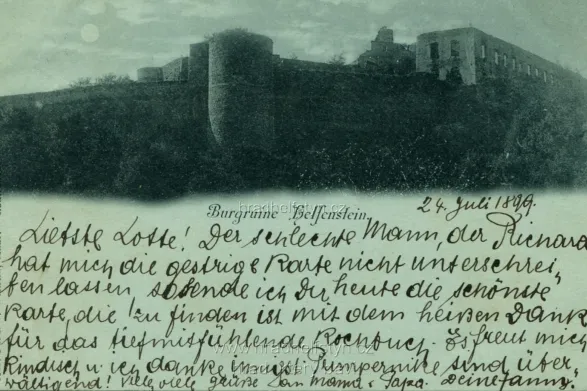 www.hradhelfstyn.cz
Burgruine Helfenstein.
24. Juli 1899.
Liebste Lotte! Der schlechte Mann, der Richard
hat mich die gestrige Karte nicht unterschrei-
ben lassen, so sende ich Dir heute die schönste
Karte, die zu finden ist mit dem heißen Dank
für das tiefmitfühlende Kochbuch. Es freut mich
www.hradhelfstyn.cz
kindisch u. ich danke sind über
wältigend! Viele viele Grüße an Mama & Papa. Deine Fanny.